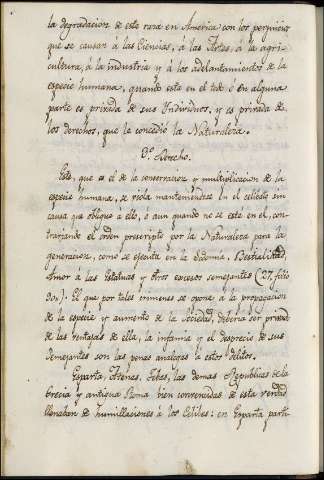 la degradacion de esta raza en America con los perjuicios
que se causan á las Ciencias, á las Artes, á la agri-
cultura, á la industria y á los adelantamientos de la
especie humana, quando esta en el todo ó en alguna
parte es privada de sus Individuos, y es privada de
los derechos, que la concedió la Naturaleza.
3.º Derecho.
Este, que es el de la conservacion y multiplicacion de la
especie humana, se viola manteniendose en el celibato sin
causa q.e obligue a ello, ó aun quando no se este en el, con-
trariando el orden prescripto por la Naturaleza para la
generacion, como se ejecuta en la Sodomia, Bestialidad,
Amor á las Estatuas y otros excesos semejantes (27, folio
). El que por tales crimenes se opone á la propagacion
de la especie y aumento de la Sociedad, deberia ser privado
de las ventajas de ella, la infamia y el desprecio de sus
semejantes son las penas analogas á estos delitos.
Esparta, Atenas, Tebas, las demas Republicas de la
Grecia y antigua Roma bien convencidas de esta verdad
llenaban de humillaciones á los Celibes: en Esparta parti-